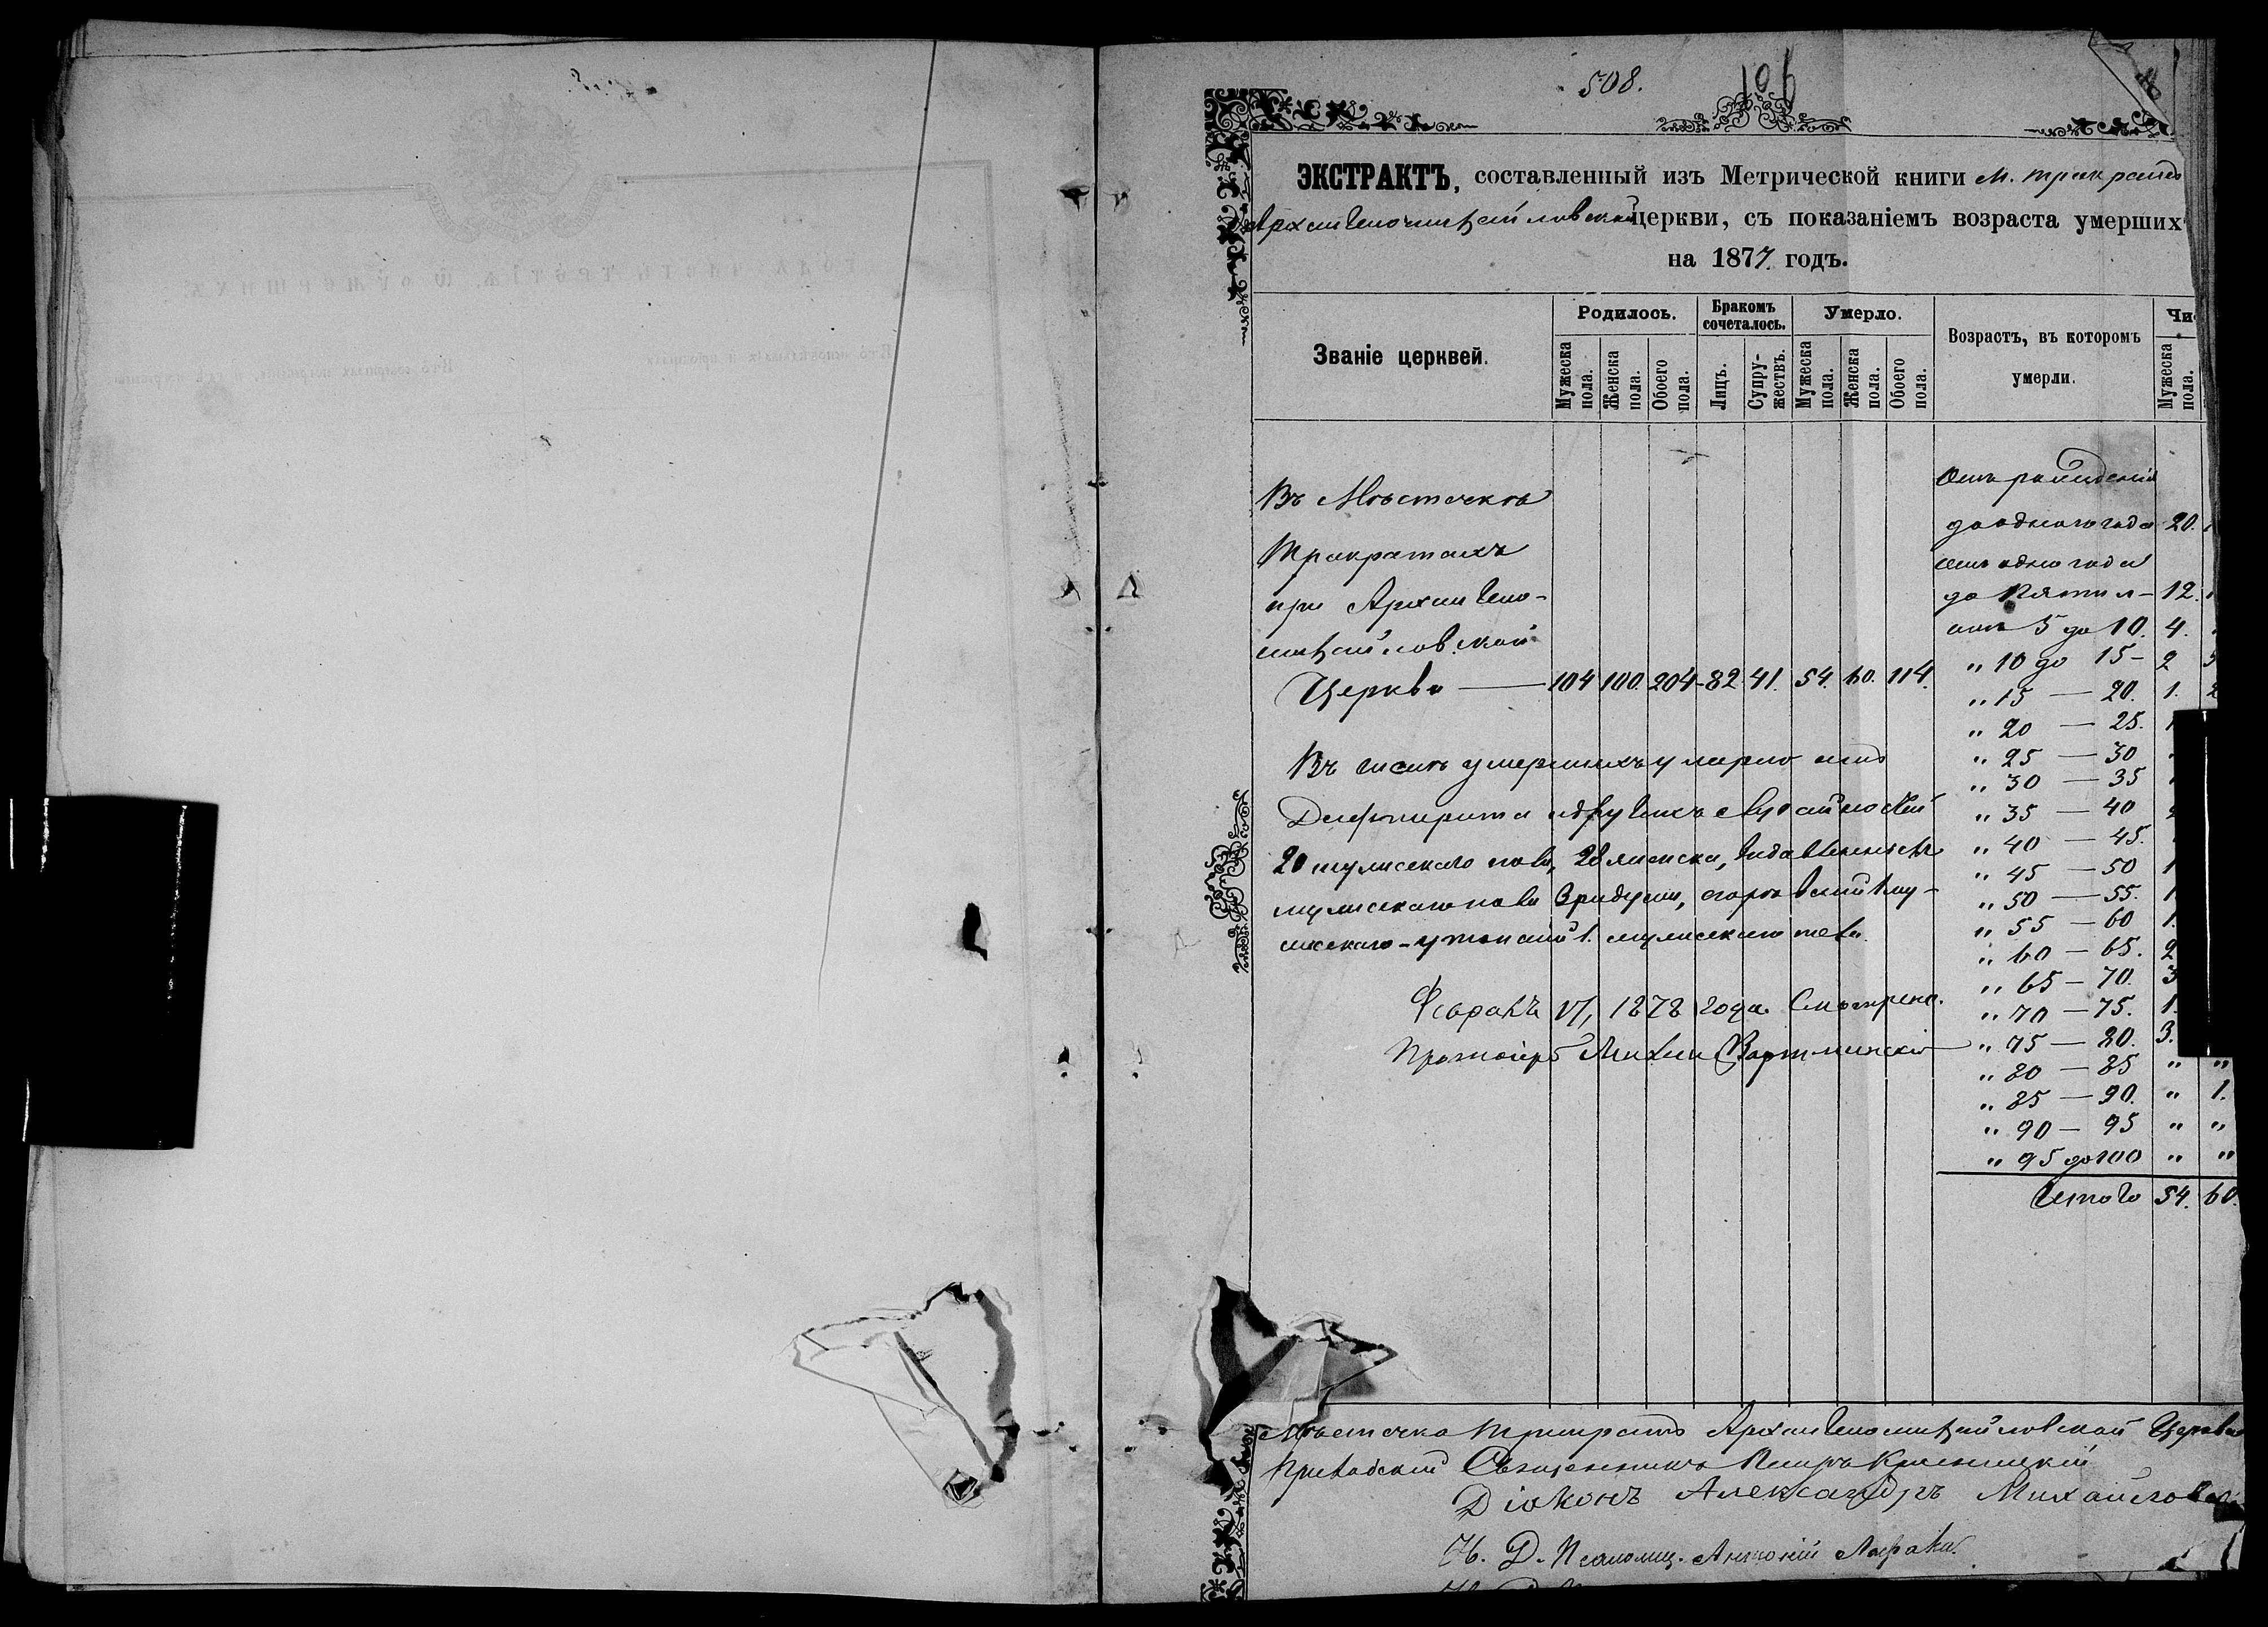 508. 106
ЭКСТРАКТЪ, составленный изъ Метрической книги м. Трикратъ
Архангеломихайловской церкви, съ показаніемъ возраста умершихъ
на 1877 годъ.
Званіе церквей.
Родилось.
Бракомъ сочеталось.
Умерло.
Возрастъ, въ которомъ умерли.
Чи
Мужеска пола.
Женска пола.
Обоего пола.
Лицъ.
Супружествъ.
Мужеска пола.
Женска пола.
Обоего пола.
Мужеска пола.
Въ Мѣстечкѣ
Трикратахъ
при Архангело-
михайловской
Церкви — 104 100. 204 - 82 41. 54. 60. 114.
Въ числѣ умершихъ умерло отъ
Дифтерита и другихъ
20 мужескаго пола, 28 женска,
мужескаго пола 3 ридуши, 1 му-
жескаго - утопшій 1. мужескаго пола.
1878 года Смотрено.
Протоіерей
Отъ рожденія
до одного года 20.
отъ одного года
до Пяти л - 12.
отъ 5 до 10. 4.
" 10 до 15 - 2
" 15 — 20. 1.
" 20 — 25.
" 25 — 30
" 30 — 35
" 35 — 40
" 40 — 45.
" 45 — 50 1
" 50 — 55. 1.
" 55 — 60 1.
" 60 — 65. 2
" 65 — 70. 3
" 70 — 75. 1.
" 75 — 80. 3.
" 80 — 85 " "
" 85 — 90. " 1.
" 90 — 95 " "
" 95 до 100 " "
Итого 54. 60.
Мѣстечка Трикратъ Архангеломихайловской Церкви
Приходскій Священникъ Петръ
Діаконъ Александръ
И. Д. Псаломщ. Антоній